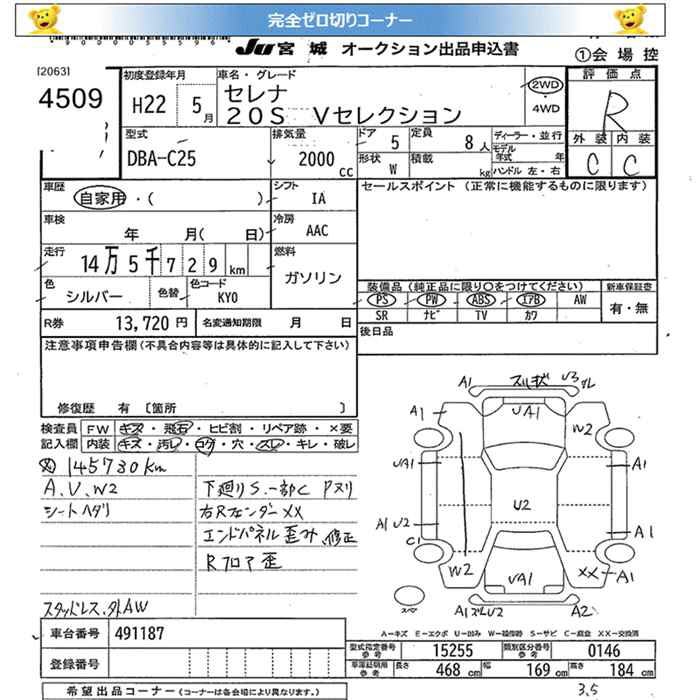 完全ゼロ切りコーナー
JU 宮城 オークション出品申込書
①会場控
[2063]
4509
初度登録年月
H22 5月
車名・グレード
セレナ
20S Vセレクション
2WD
・4WD
評価点
R
外装 内装
C C
型式
DBA-C25
排気量
2000 cc
ドア 5
定員 8人
形状 W
積載 kg
ディーラー・並行
モデル年式 年
ハンドル 左・右
車歴
自家用・( )
シフト IA
セールスポイント(正常に機能するものに限ります)
車検
年 月( 日)
冷房 AAC
走行
14万5千729km
燃料
ガソリン
色
シルバー
色替
色コード
KY0
装備品(純正品に限り○をつけてください)
PS PW ABS エアB AW
SR ナビ TV カワ
新車保証書
有・無
R券 13,720円
名変通知期限 月 日
後日品
注意事項申告欄(不具合内容等は具体的に記入して下さい)
修復歴 有 〔箇所 〕
検査員記入欄
FW キズ・飛石・ヒビ割・リペア跡・×要
内装 キズ・汚レ・コゲ・穴・スレ・キレ・破レ
145730km
A、U、W2
シートヘタリ
下廻りS、一部C Pヌリ
右Rフェンダー××
エンドパネル歪み、修正
Rフロア歪
スタッドレス、外AW
A1 スレキズ U3
A1
UA1
W2
UA1
A1
U2
A1 U2
C1
A1
W2
UA1
××
A1
スペア
A1ズレU2
A2
A-キズ E-エクボ U-凹み W-補修跡 S-サビ C-腐食 XX-交換済
車台番号 491187
登録番号
型式指定番号 参考 15255
類別区分番号 参考 0146
車庫証明用 参考
長さ 468cm 幅 169cm 高さ 184cm
希望出品コーナー(コーナーは各会場により異なります。)
3.5